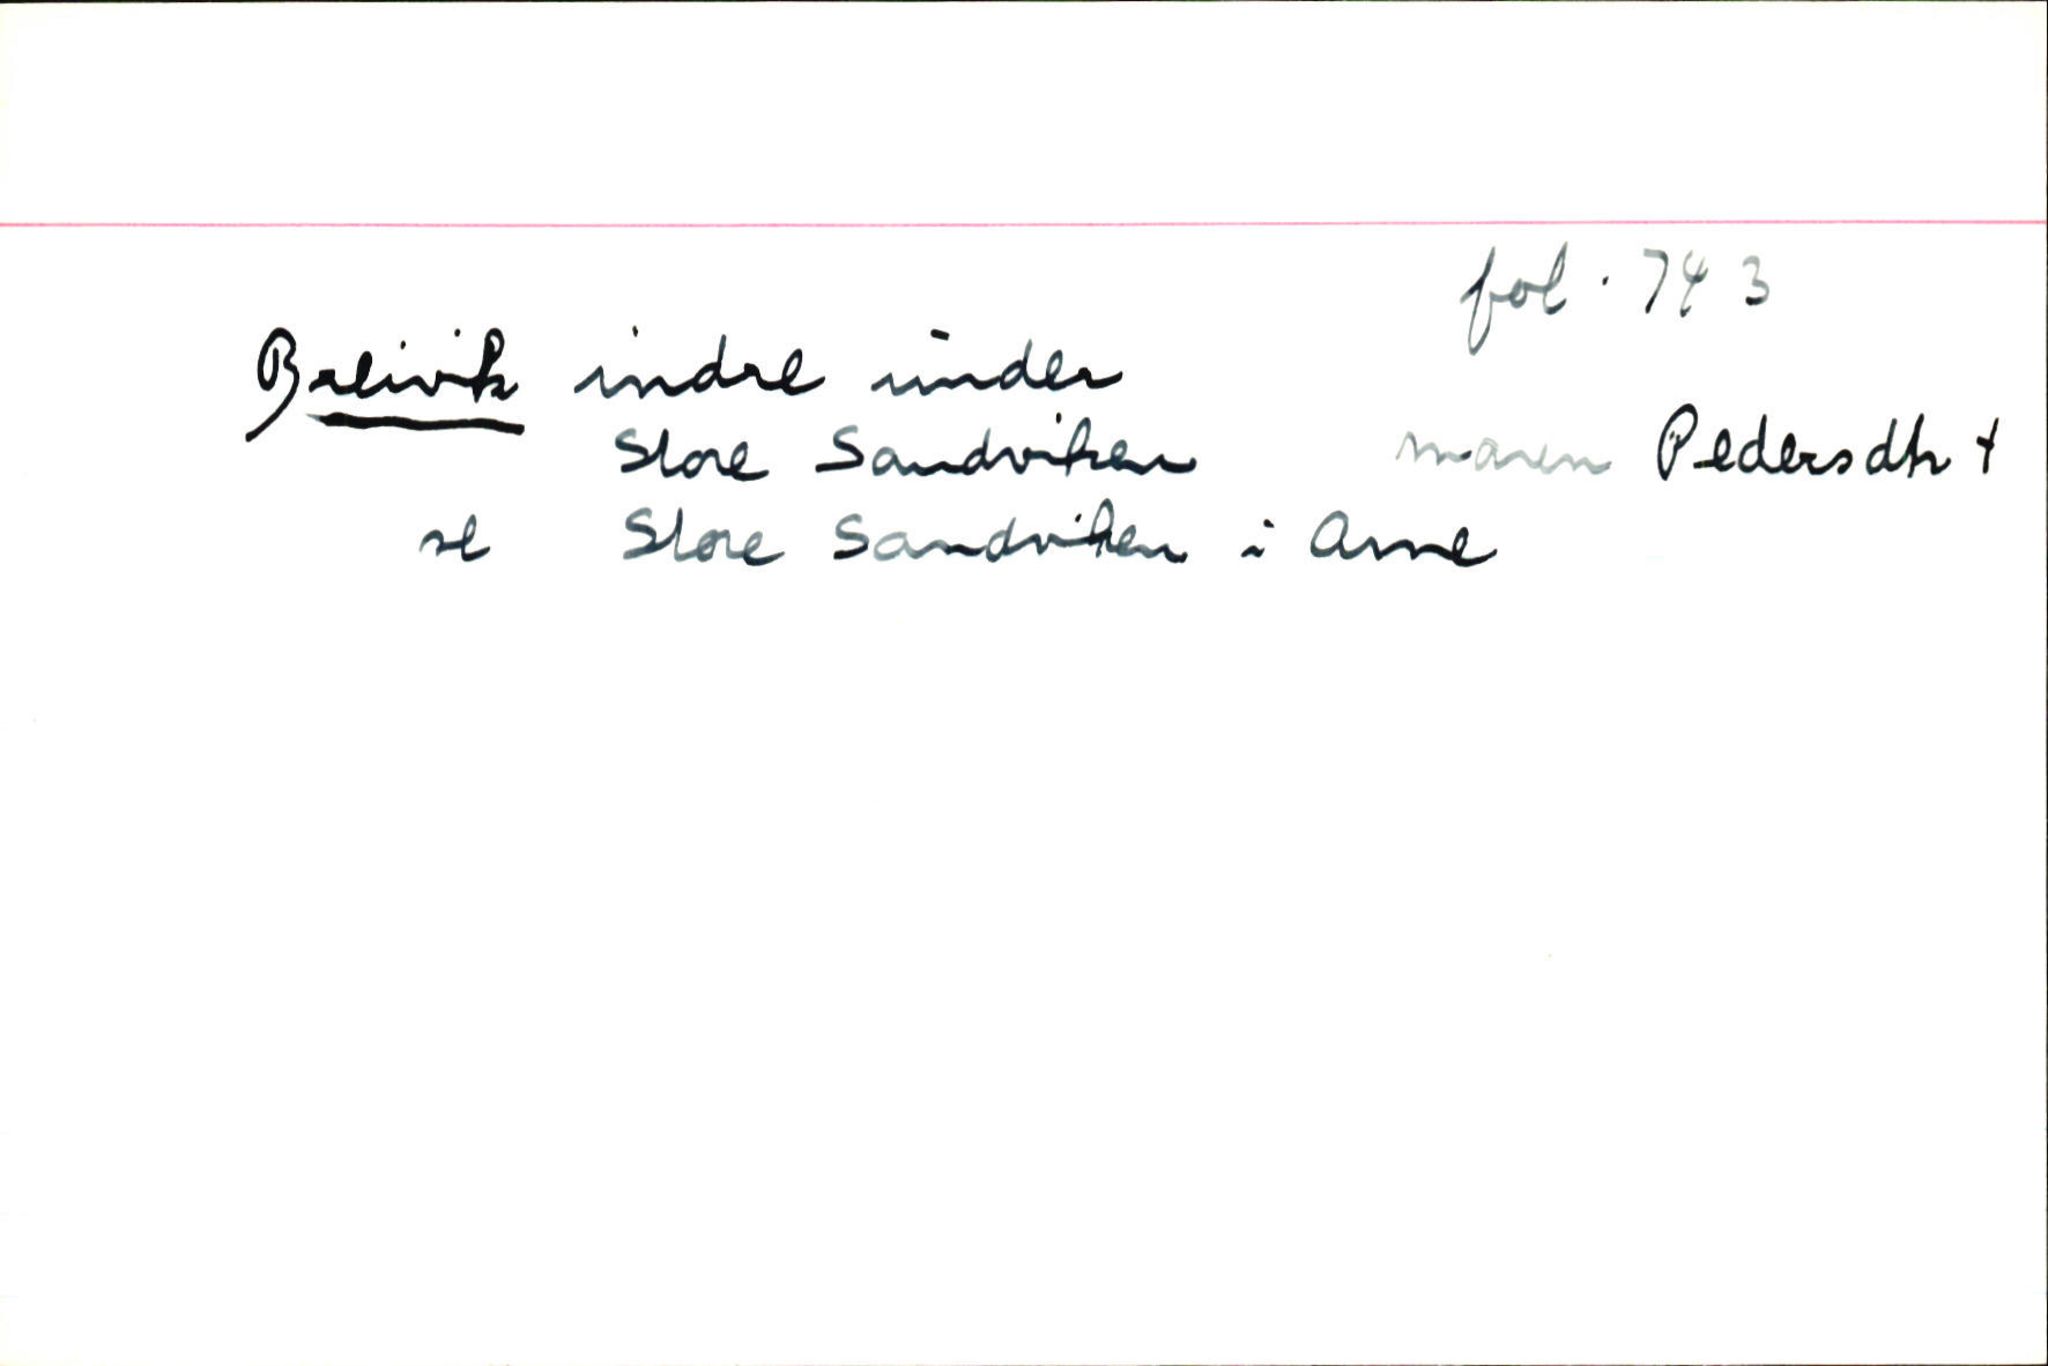 fol. 743
Breivik indre under
Store Sandviken maren Pedersdtr +
se Store Sandviken i Arne